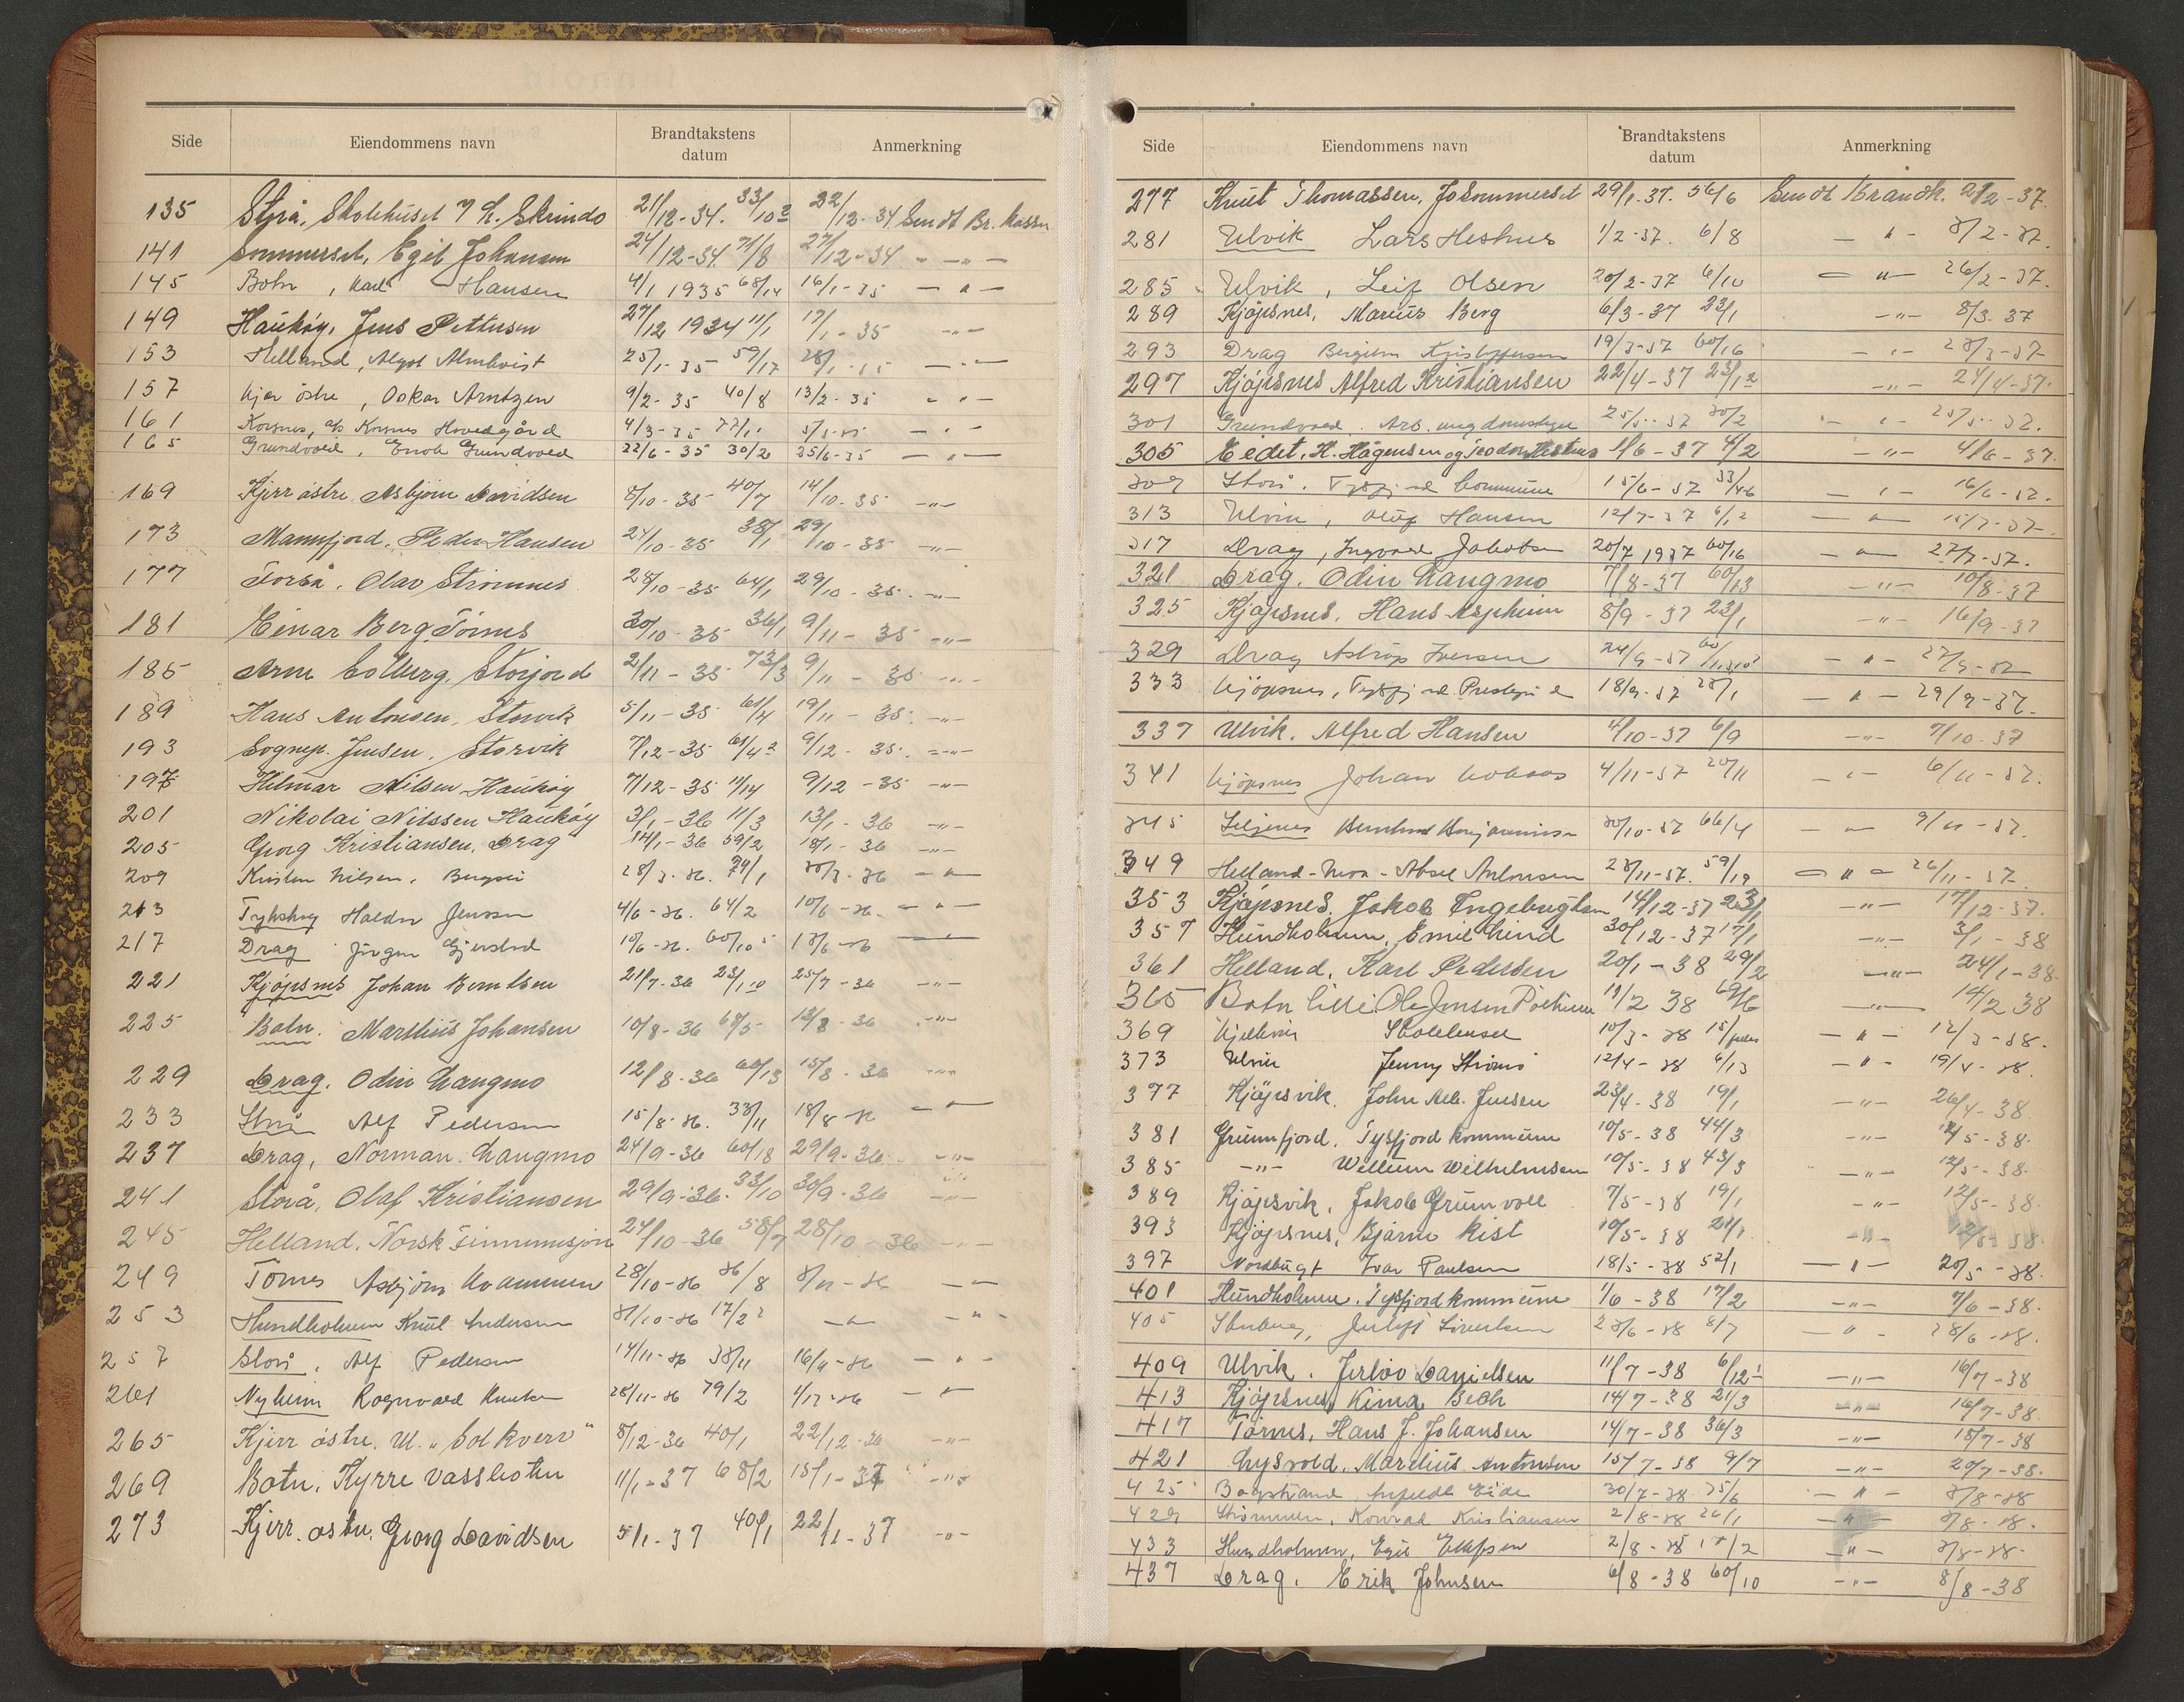 Side Eiendommens navn Brandtakstens datum Anmerkning
135 Skolehuset 21/12-34. 33/10 22/12-34 Sendt Br. kassen
141 Sommerset, Egil Johansen 24/12-34 71/8 27/12-34 - " -
145 Botn, Karl Hansen 4/1 1935 68/14 16/1-35 - " -
149 Haukøy, Jens Pettersen 27/12 1934 11/1 17/1-35 - " -
153 Helland, Algot Almkvist 25/1-35 59/17 28/1
157 Kjær østre, Oskar Arntzen 9/2-35 40/8 13/2-35 - " -
161 Korsnes, Korsnes Hovedgård 4/3-35 77/11
165 Grundvold, Enok Grundvold 22/6-35 30/2 25/6-35 - " -
169 Kjerr østre Asbjørn Davidsen 8/10-35 40/7 14/10-35 - " -
173 Mannfjord. Peder Hansen 24/10-35 38/1 29/10-35 - " -
177 Forså. Olav Strømnes 28/10-35 64/1 29/10-35. - " -
181 Einar Berg Tørnes 30/10-35 36/1 9/11-35 - " -
185 Arne Solberg, Storjord 2/11-35 73/3 9/11-35 - " -
189 Hans Antonsen, Storvik 5/11-35 61/4 19/11-35. - " -
193 Sognepr. Jensen, Storvik 7/12-35 61/4² 9/12-35. - " -
197 Hilmar Nilsen Haukøy 7/12-35 11/14 9/12-35 - " -
201 Nikolai Nilssen Haukøy 3/1-36 11/3 13/1-36 - " -
205 Georg Kristiansen, Drag 14/1-36 59/2 18/1-36 - " -
209 Kristen Nilsen, 28/3-36. 74/1 30/3-36 - " -
213 Haldor Jensen 4/6-36. 64/2 10/6-36. - " -
217 Drag Jørgen 10/6-36. 60/10
221 Kjøpsnes Johan Berntsen 21/7-36 23/1 25/7-36 - " -
225 Botn. Marthius Johansen 10/8-36 68/5 13/8-36 - " -
229 Drag. Odin Langmo 12/8-36 60/13 15/8-36 - " -
233 Storå Alf Pedersen 15/8-36. 33/11 18/8-36 - " -
237 Drag, Norman Langmo 24/9-36 60/18 29/9-36 - " -
241 Storå, Olaf Kristiansen 29/9-36. 33/10 30/9-36 - " -
245 Helland, Norsk Finnemisjon 24/10-36 58/7 28/10-36 - " -
249 Tørnes Asbjørn Kvammen 28/10-36 36/8 - " -
253 Hundholmen Knut Andersen 31/10-36 17/2² - " - - " -
257 Storå, Alf Pedersen 14/11-36 33/11 16/11-36 - " -
261 Nyheim Ragnvald Knutsen 28/11-36 79/2 1/12-36 - " -
265 Kjerr østre. U.l. "Solkverv" 8/12-36 40/1 22/12-36 - " -
269 Botn. Kyrre Vassbotn 11/1-37 68/2 15/1-37 - " -
273 Kjerr østre, Georg Davidsen 5/1-37 40/1 22/1-37 - " -
Side Eiendommens navn Brandtakstens datum Anmerkning
277 Knut Thomassen, Sommerset 29/1-37. 56/6 Sendt Brandk. 2/2-37.
281 Ulvik Lars Hestnes 1/2-37. 6/8 - " - 8/2-37.
285 Ulvik, Leif Olsen 20/2-37 6/10 - " - 26/2-37.
289 Kjøpsnes, Marius Berg 6/3-37 23/1 - " - 8/3-37
293 Drag Kristoffersen 19/3-37 60/16 - " - 23/3-37
297 Kjøpsnes Alfred Kristiansen 22/4-37 23/1² - " - 24/4-37.
301 Grundvold. Arb. ungdomslag 25/5-37 30/2 - " -
305 Eidet, H. Hågensen og Teodor Hestnes 1/6-37 4/2 - " - 4/6-37.
309 Storå. Tysfjord kommune 15/6-37 33/46 - " - 16/6-37.
313 Ulvik, Oluf Hansen 12/7-37 6/12 - " - 15/7-37.
317 Drag, Ingvald Jakobsen 20/7 1937 60/16 - " - 27/7-37.
321 Drag. Odin Langmo 7/8-37 60/13 - " - 10/8-37
325 Kjøpsnes. Hans Aspheim 8/9-37 23/1 - " - 16/9-37
329 Drag Astrup Iversen 24/9-37 - " - 27/9-37
333 Kjøpsnes, Tysfjord Prestegård 18/9-37 23/1 - " - 29/9-37.
337 Ulvik. Alfred Hansen 4/10-37 6/9 - " - 7/10-37
341 Kjøpsnes Johan 4/11-37 20/11 - " - 6/11-37.
345 Bernhard Benjaminsen 30/10-37 66/4 - " - 9/11-37.
349 Helland - Aksel Antonsen 23/11-37. 59/19 - " - 26/11-37.
353 Kjøpsnes, Jakob Ingebrigtsen 14/12-37 23/1 - " - 17/12-37.
357 Hundholmen, Emil Lind 30/12-37 17/1 - " - 3/1-38
361 Helland, Karl Pedersen 20/1-38 29/2 - " - 24/1-38.
365 Botn lille Ole Jensen 11/2 38 69/6 - " - 14/2 38
369 Skolehuset 10/3-38 - " - 12/3-38.
373 Ulvik Jenny Strøm 12/4-38 6/13 - " - 19/4-38.
377 Kjøpsvik. John Alb. Jensen 23/4-38 19/1 - " - 26/4-38.
381 Grunnfjord. Tysfjord kommune 10/5-38 44/3 - " - 12/5-38.
385 - " - Wilhelmsen 10/5-38 43/3 - " - 12/5-38.
389 Kjøpsvik, Jakob Grunvoll 7/5-38 19/1 - " - 12/5-38.
393 Kjøpsnes, Bjarne Rist 10/5-38 21/1 - " -
397 Nordbugt Ivar Paulsen 18/5-38 52/1 - " - 20/5-38.
401 Hundholmen. Tysfjord kommune 1/6-38 17/2 - " - 7/6-38.
405 Sivertsen 23/6-38 8/7 - " - 28/6-38.
409 Ulvik. Danielsen 11/7-38 6/12 - " - 16/7-38
413 Kjøpsnes, Kima Bech 14/7-38 21/3 - " - 16/7-38.
417 Tørnes, Hans J. Johansen 14/7-38 36/3 - " - 18/7-38
421 Lysvold. Marelius Antonsen 15/7-38 9/7 - " - 20/7-38.
425 Bogstrand Eide 30/7-38 75/6 - " - 3/8-38
429 Strømmen, Konrad Kristiansen 2/8-38 26/1 - " - 3/8-38.
433 Hundholmen, Egil Ellefsen 2/8-38 17/2 - " -
437 Drag. Erik Johnsen 6/8-38 60/10 - " - 8/8-38